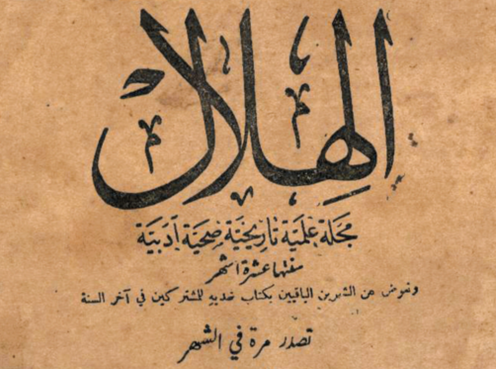 الهلال
مجلة علمية تاريخية صحية أدبية
سنتها عشرة اشهر
ونعوض عن الشهرين الباقيين بكتاب نهديه للمشتركين في آخر السنة
تصدر مرة في الشهر